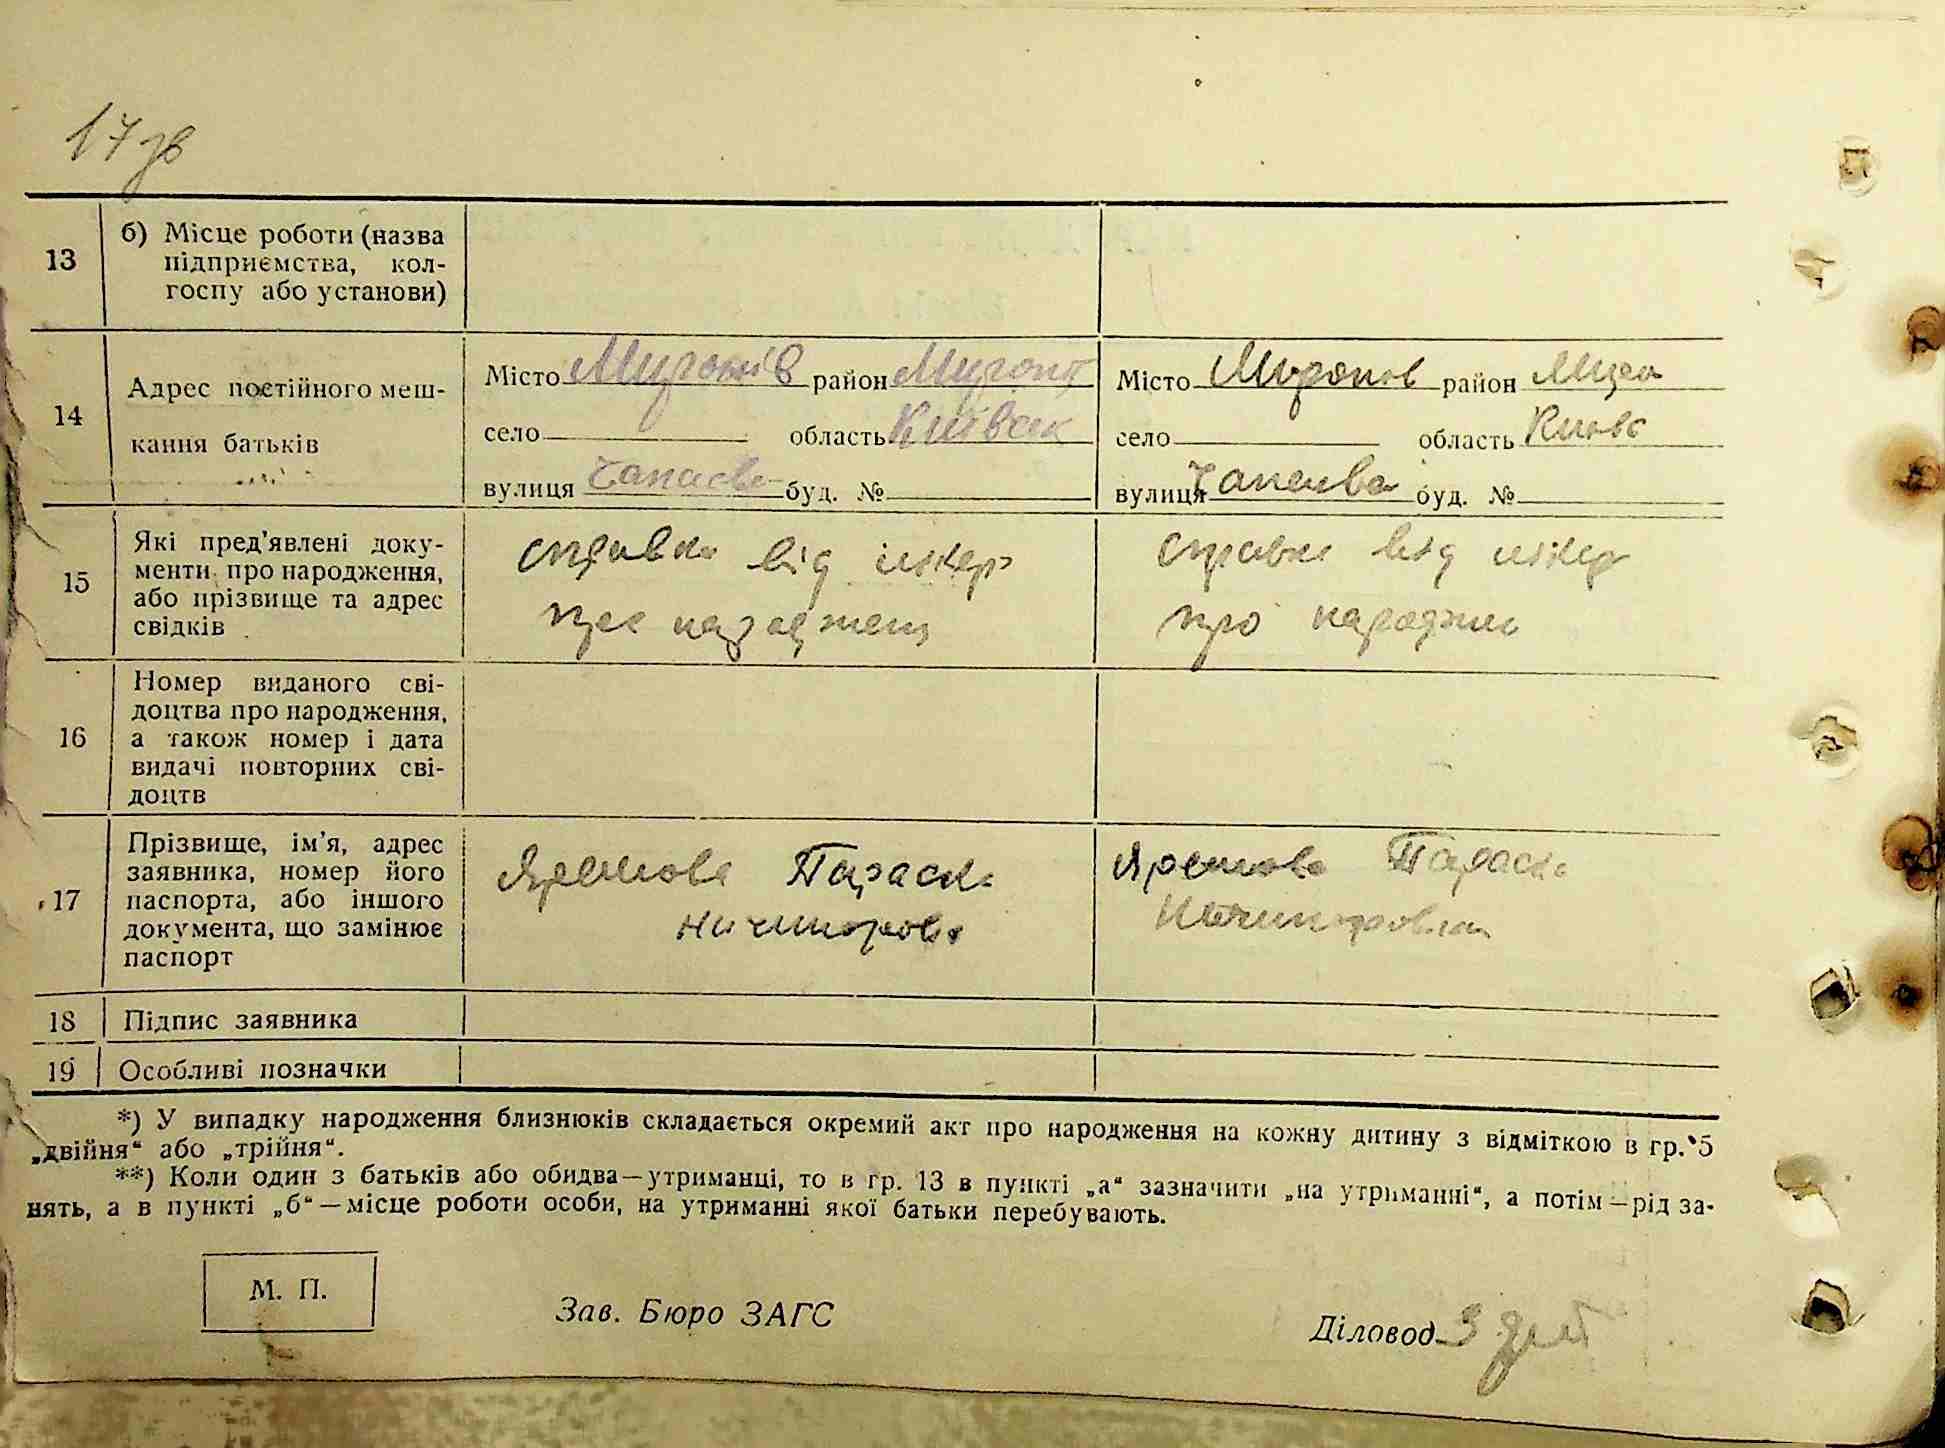 17 зв
13
б) Місце роботи (назва
підприємства, кол-
госпу або установи)
14
Адрес постійного меш-
кання батьків
Місто Миронів район Миронт
село область Київськ
вулиця Чапаєва буд. №
Місто Миронов район Миро
село область Киевс
вулиця Чапаєва буд. №
15
Які пред'явлені доку-
менти про народження,
або прізвище та адрес
свідків
справка від
про народжен
справка від
про народжен
16
Номер виданого сві-
доцтва про народження,
а також номер і дата
видачі повторних сві-
доцтв
17
Прізвище, ім'я, адрес
заявника, номер його
паспорта, або іншого
документа, що замінює
паспорт
Яремова Параск
Ничипоров
Яремова Параск
Ничипоровна
18 Підпис заявника
19 Особливі позначки
*) У випадку народження близнюків складається окремий акт про народження на кожну дитину з відміткою в гр. 5
„двійня“ або „трійня“.
**) Коли один з батьків або обидва—утриманці, то в гр. 13 в пункті „а“ зазначити „на утриманні“, а потім—рід за-
нять, а в пункті „б“—місце роботи особи, на утриманні якої батьки перебувають.
М. П.
Зав. Бюро ЗАГС
Діловод